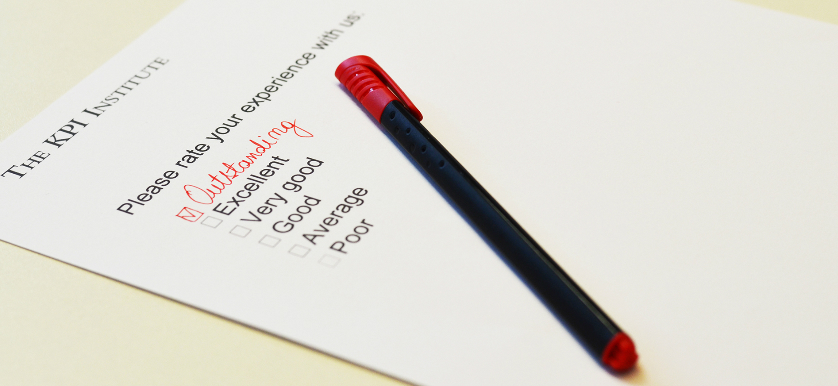 THE KPI INSTITUTE
Please rate your experience with us:
Outstanding
Excellent
Very good
Good
Average
Poor